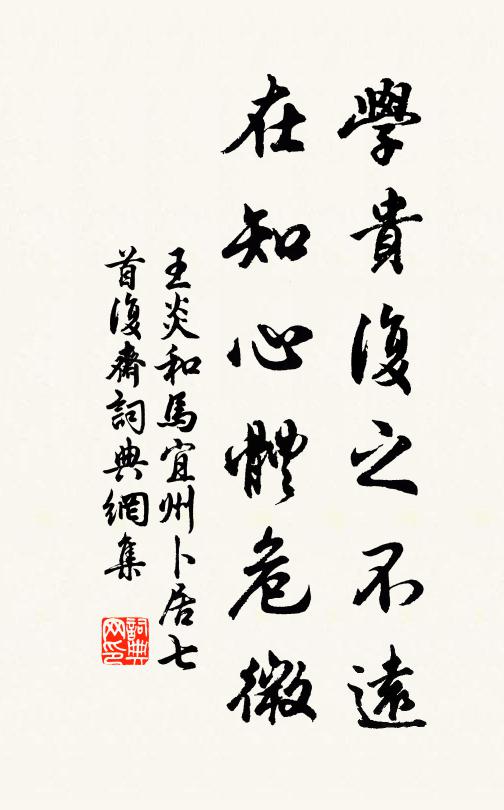 學貴復之不遠
在知心體危微
王炎和馬宜州卜居七
首復齋詞典網集
詞典
网印